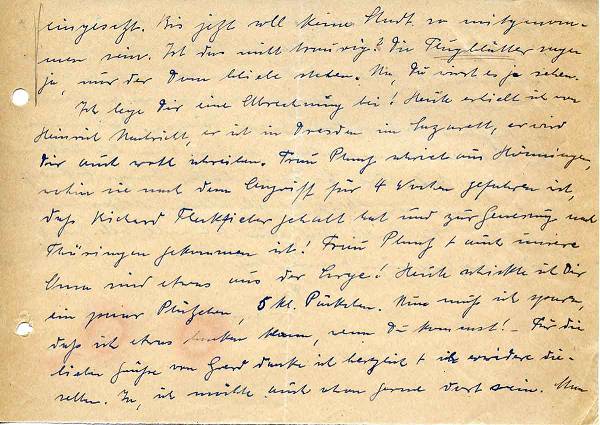 eingesetzt. Bis jetzt soll keine Stadt so mitgenom-
men sein. Ist das nicht traurig? Die Flugblätter sagen
ja, nur der Dom bliebe stehen. Na, Du wirst es ja sehen.
Ich lege Dir eine Abrechnung bei! Heute erhielt ich von
Heinrich Nachricht, er ist in Dresden im Lazarett, er wird
Dir auch wohl schreiben. Frau schrieb aus
wohin sie nach dem Angriff für 4 Wochen gefahren ist,
daß Richard Fleckfieber gehabt hat und zur Genesung nach
Thüringen gekommen ist! Frau + auch unsere
Oma sind etwas aus der Sorge! Heute schickte ich Dir
ein paar 5 kl. Päckchen. Nun muß ich sparen,
daß ich etwas kann, wenn Du kommst! – Für die
lieben Grüße von Gerd danke ich herzlich + ich erwidere die-
selben. Ja, ich möchte auch schon gerne dort sein. Man